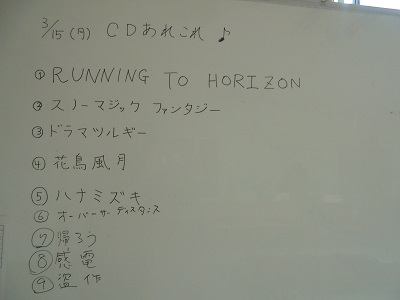 3/15(月) CDあれこれ♪
① RUNNING TO HORIZON
② スノーマジック ファンタジー
③ ドラマツルギー
④ 花鳥風月
⑤ ハナミズキ
⑥ オーバーザ ディスタンス
⑦ 帰ろう
⑧ 感電
⑨ 盗作